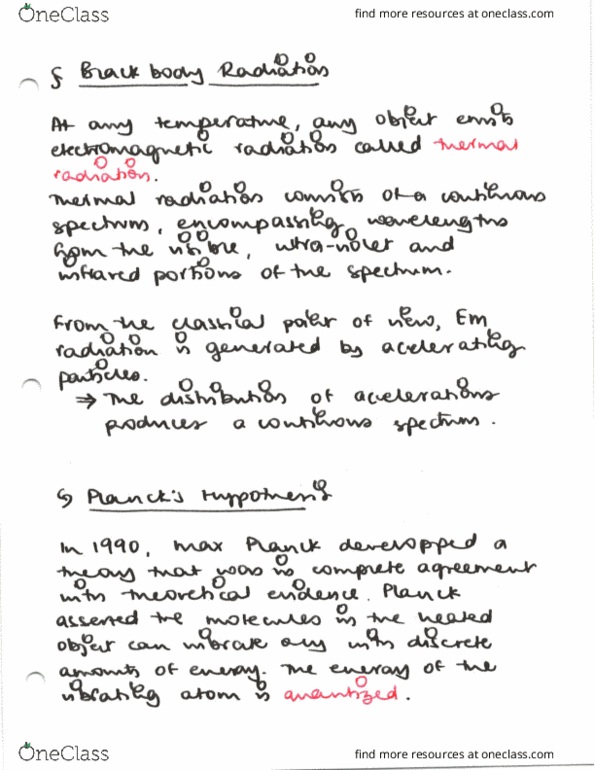 OneClass
find more resources at oneclass.com
§ Black body Radiation
At any temperature, any object emits
electromagnetic radiation called thermal
radiation.
Thermal radiation consists of a continous
spectrum, encompassing wavelengths
from the visible, ultra-violet and
infrared portions of the spectrum.
From the classical point of view, Em
radiation is generated by accelerating
particles.
⇒ The distribution of accelerations
produces a continuous spectrum.
§ Planck's Hyppothesis
In 1990, Max Planck developped a
theory that was in complete agreement
with theoretical evidence. Planck
asserted the molecules in the heated
object can vibrate only with discrete
amounts of energy. The energy of the
vibrating atom is quantized.
OneClass
find more resources at oneclass.com